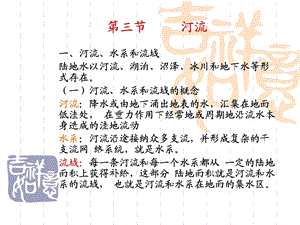 第三节 河流
一、河流、水系和流域
陆地水以河流、湖泊、沼泽、冰川和地下水等形
式存在。
(一)河流、水系和流域的概念
河流:降水或由地下涌出地表的水,汇集在地面
低洼处,在重力作用下经常地或周期地沿流水本
身造成的洼地流动
水系:河流沿途接纳众多支流,并形成复杂的干
支流网络系统,就是水系。
流域:每一条河流和每一个水系都从一定的陆地
面积上获得补给,这部分陆地面积就是河流和水
系的流域,也就是河流和水系在地面的集水区。
吉祥
如意